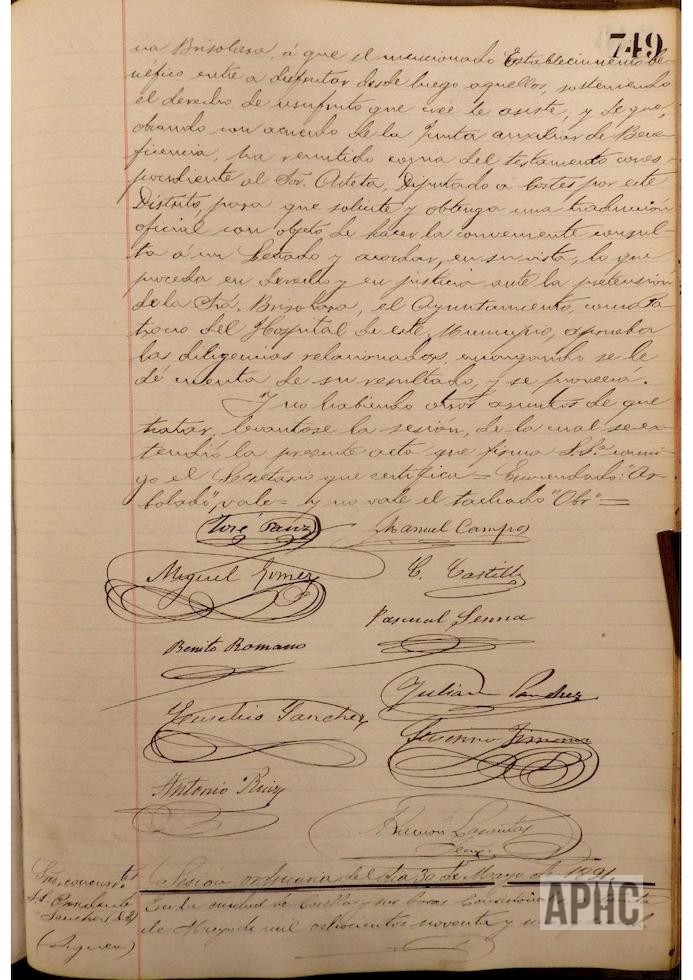 749
na Brisolara, á que el mencionado Establecimiento be-
néfico entre a disfrutar desde luego aquellos, sosteniendo
el derecho de usufruto que cree le asiste, y de que,
obrando con acuerdo de la Junta auxiliar de Bene-
ficencia, ha remitido copia del testamento corres-
pondiente al Sor. Diputado a Cortes por este
Distrito, para que solicite y obtenga una traducción
oficial con objeto de hacer la conveniente consul-
ta á un Letrado y acordar, en su vista, lo que
proceda en derecho y en justicia ante la pretensión
de la Sra. Brisolara, el Ayuntamiento, como Pa-
trono del Hospital de este Municipio, aprueba
las diligencias relacionadas, encargando se le
dé cuenta de su resultado, y se proveerá.
Y no habiendo otros asuntos de que
tratar, levantose la sesión, de la cual se ex-
tendió la presente acta que firma S.Sa. conmi-
go el Secretario que certifica = Enmendado: "Ar-
bolado", vale = Y no vale el tachado "Obr" =
José Sanz Manuel Campos
Miguel Gomez C. Castilla
Pascual Senna
Benito Romano
Julian Sanchez
Eusebio Sanchez
Antonio Ruiz
Ramon
Sesion ordinaria del dia 30 de Mayo de 1891
Sres. concurrtes
S.S. Presidente
Sanchez (D. E)
(Siguen)
En la ciudad de y sus Casas Consistoriales á treinta
de Mayo de mil ochocientos noventa y
APHC